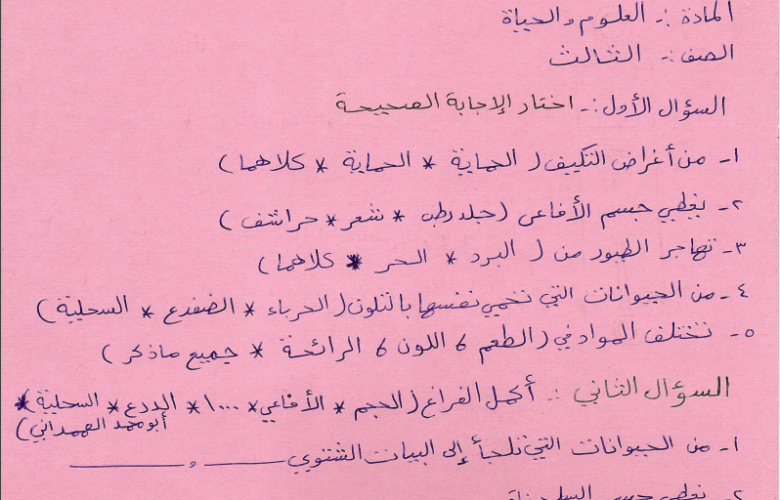 المادة :- العلوم والحياة
الصف :- الثالث
السؤال الأول :- اختار الإجابة الصحيحة
١- من أغراض التكييف ( الحماية * الحماية * كلاهما )
٢- يغطي جسم الأفاعي ( جلد رطب * شعر * حراشف )
٣- تهاجر الطيور من ( البرد * الحر * كلاهما )
٤- من الحيوانات التي تحمي نفسها بالتلون ( الحرباء * الضفدع * السحلية )
٥- تختلف المواد في ( الطعم 6 اللون 6 الرائحة * جميع ماذكر )
السؤال الثاني :- أكمل الفراغ ( الحجم * الأفاعي * ١٠٠٠ * الدرع * السحلية )*
أبو محمد الهمداني )
١- من الحيوانات التي تلجأ إلى البيات الشتوي ـــــــ و ـــــــ
٢- يغطي جسم السلحفاة